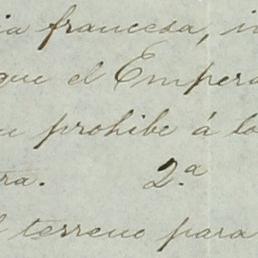 ia francesa, i
que el Empera
u prohibe á lo
ra. 2.ª
l terreno para